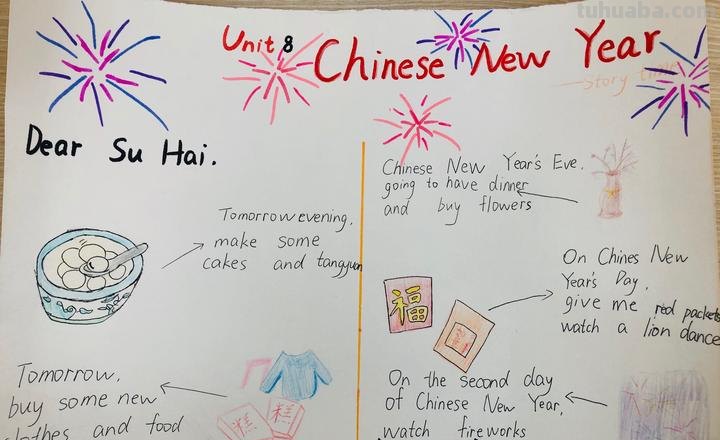 tuhuaba.com
Unit 8 Chinese New Year
—Story time
Dear Su Hai.
Tomorrow evening,
make some
cakes and tangyuan
Tomorrow,
buy some new
clothes and food
糕
糕
Chinese New Year's Eve.
going to have dinner
and buy flowers
福
On Chines New
Year's Day,
give me red packets
watch a lion dance
On the second day
of Chinese New Year,
watch fireworks